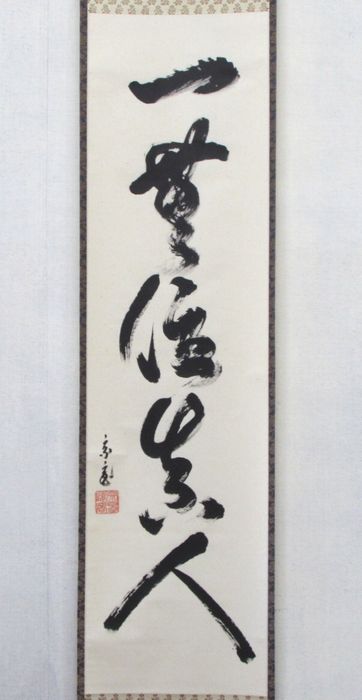 一無位真人